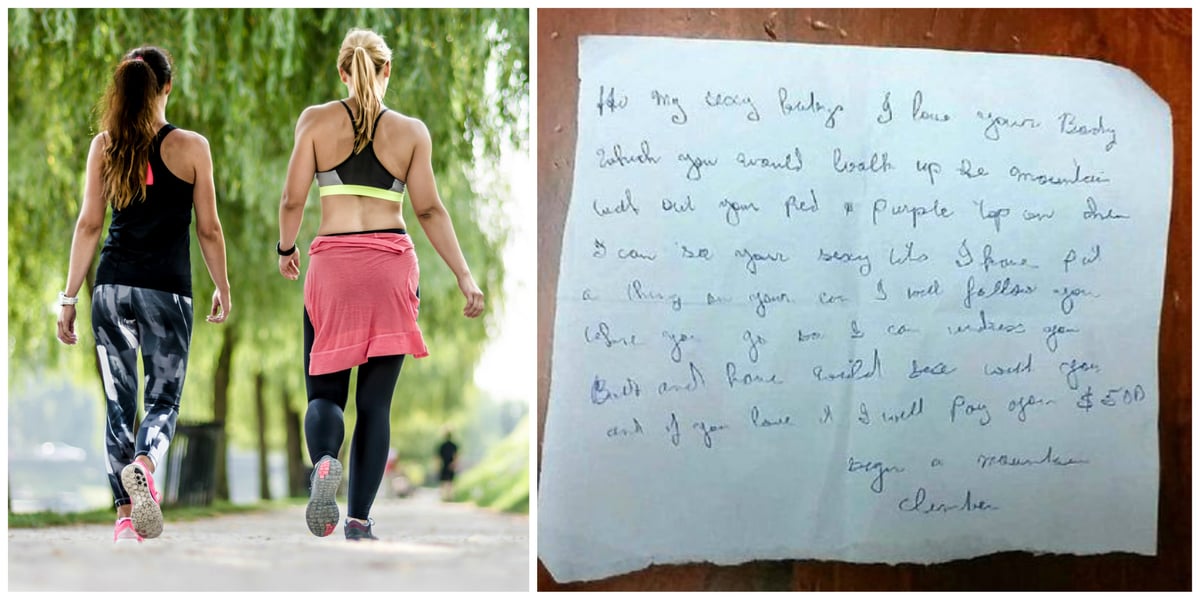 my sexy I love your Body
which you would walk up the mountain
with out your Red & purple top on then
I can se your sexy tits I have put
a thing on your car I will follow you
where you go so I can undress you
Both and have wild sexe with you
and if you love it I will pay you $500
a mountain
climber